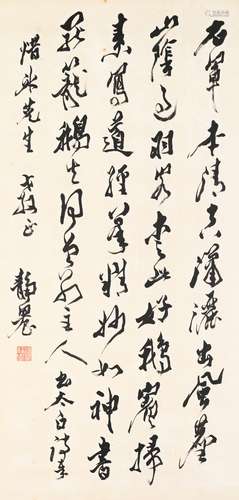 右軍本清真瀟灑出風塵
山陰過羽客愛此好鵝賓掃
素寫道經筆精妙如神書
罷籠鵝去何曾別主人 書太白詩奉
惜冰先生 教正
靜農